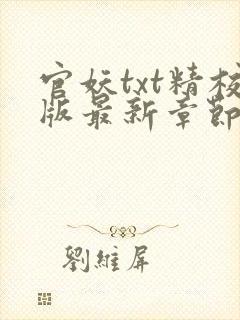 官妖txt精校
版最新章節
劉維屏